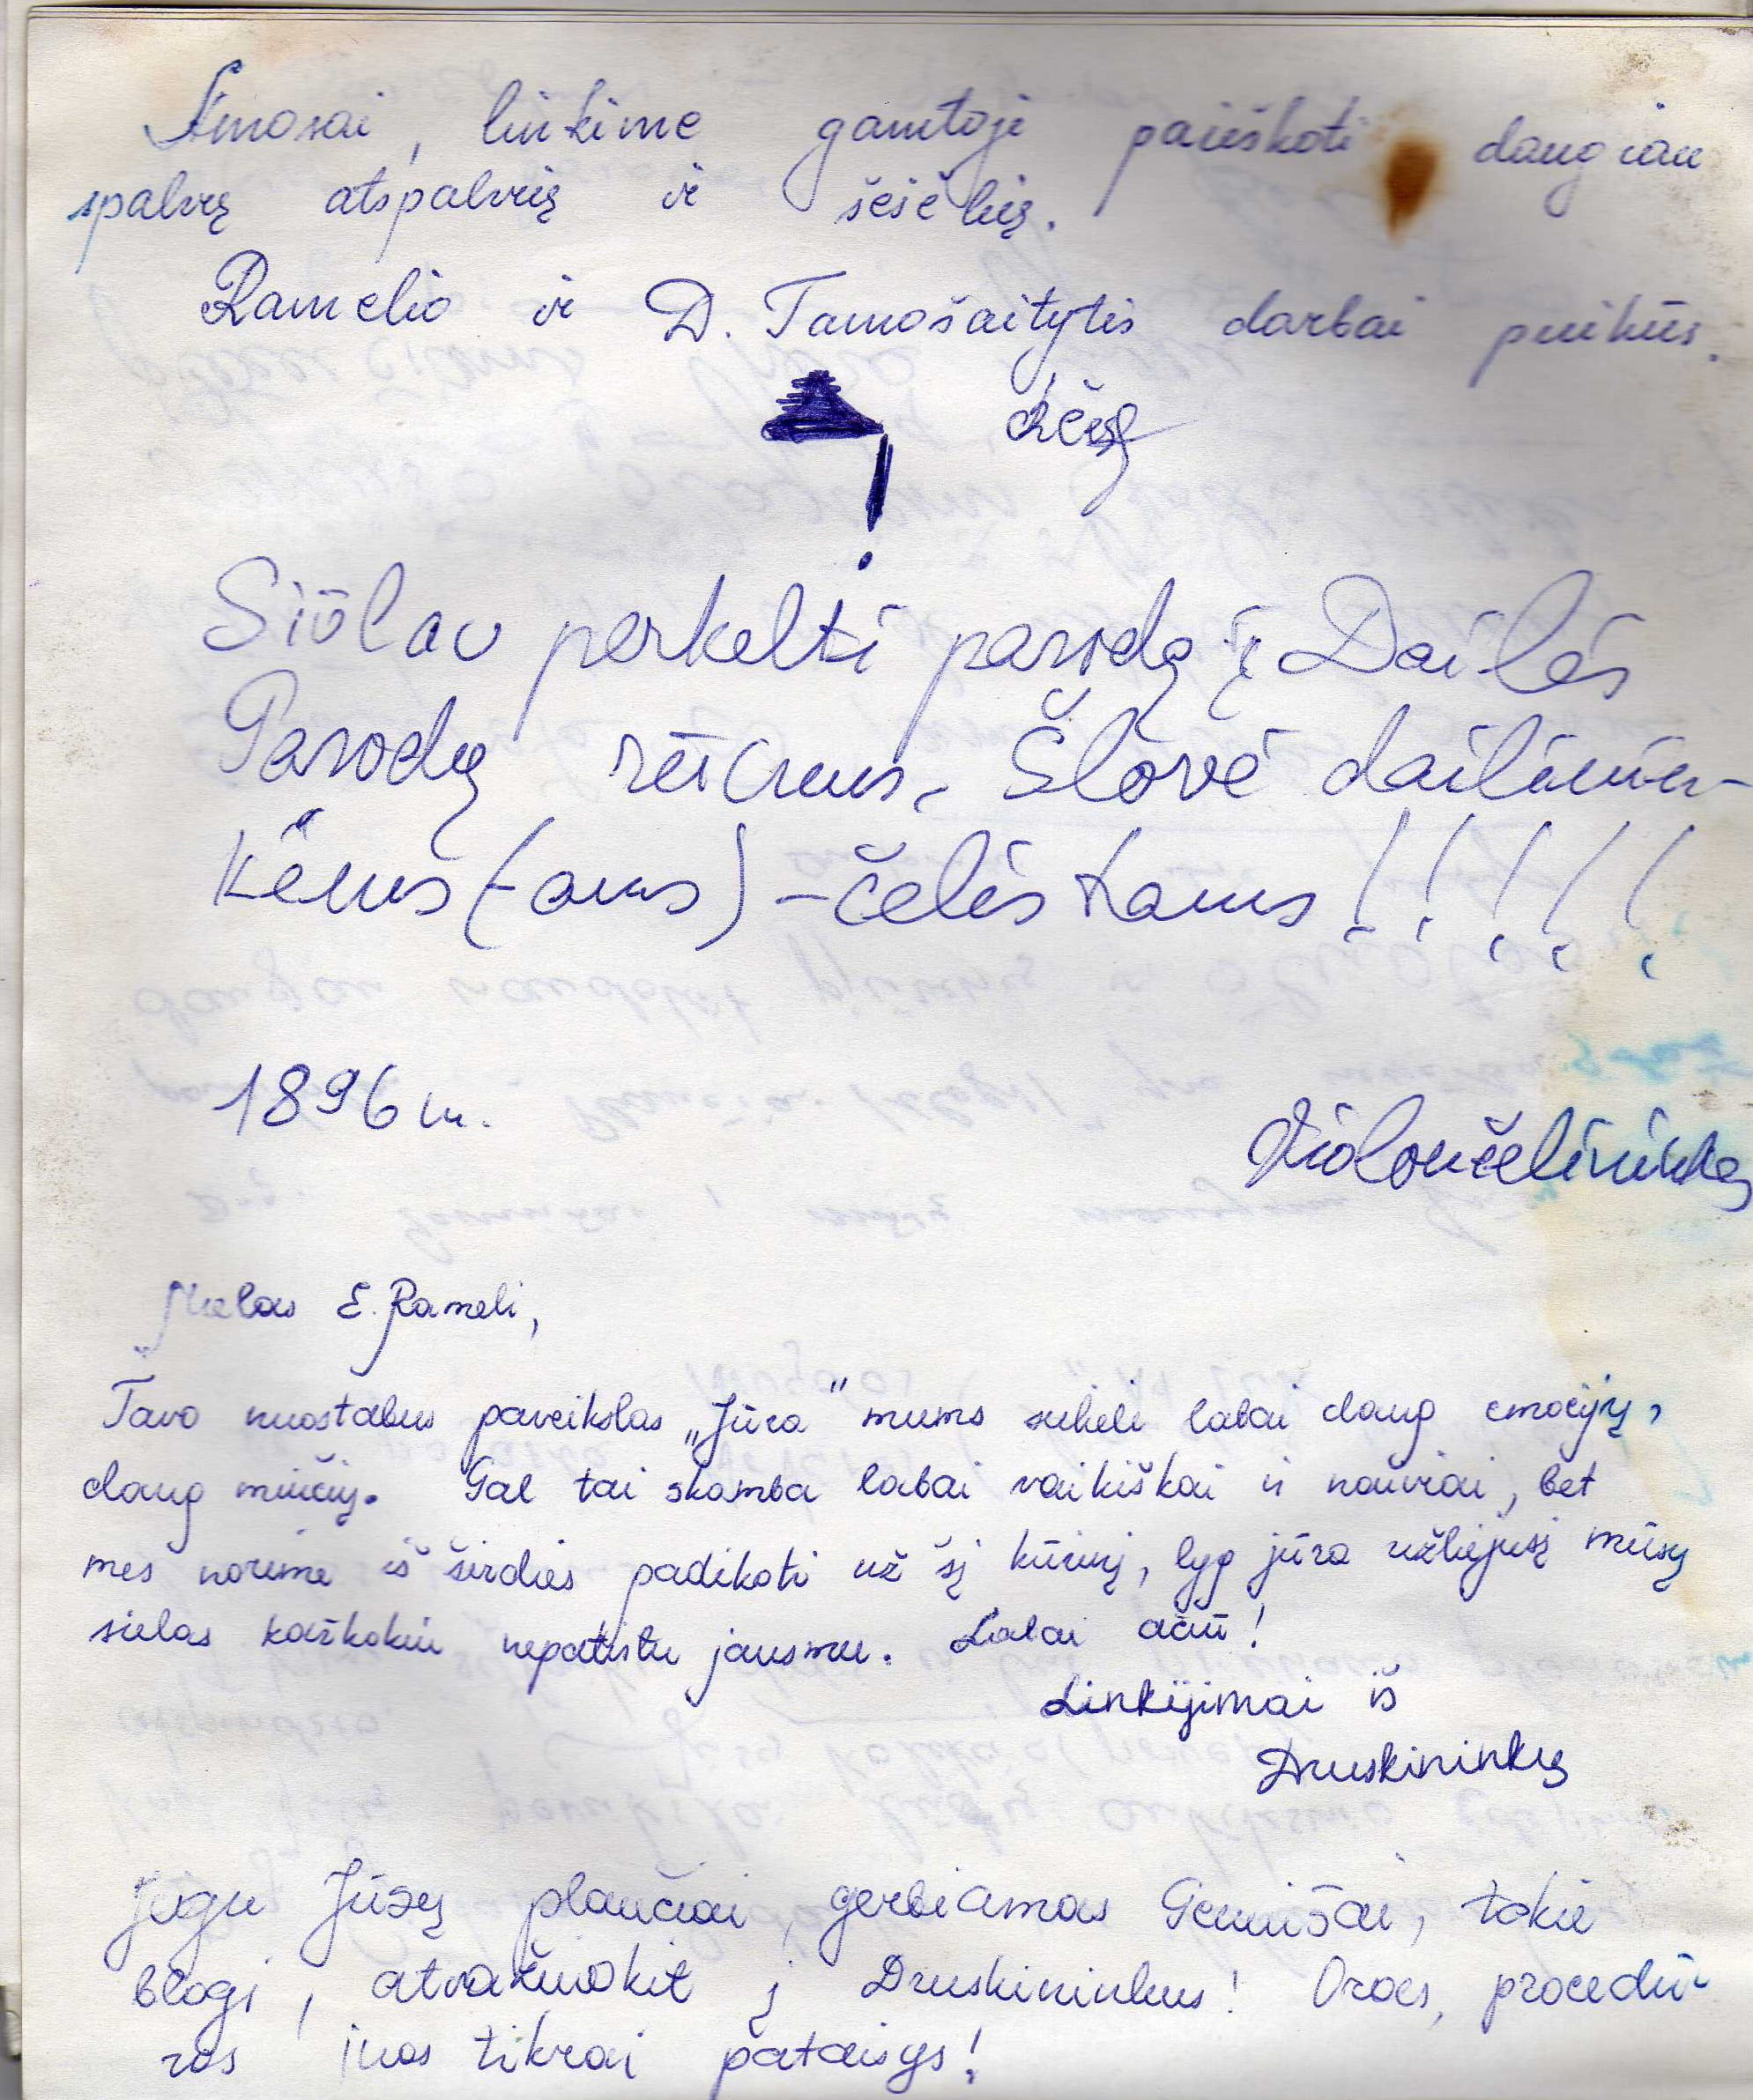 Amosai, linkime gamtoje paieškoti daugiau
spalvų atspalvių ir šešėlių.
Ramelio ir D. Tamošaitytės darbai puikūs.
Siūlau perkelti parodą į Dailės
Parodų rūmus, Šlovė dailinin-
kėms (-ams) - čelistams !!!!!
1896 m.
Violončelininkas
Mielas E. Rameli,
Tavo nuostabus paveikslas „Jūra" mums sukėlė labai daug emocijų,
daug minčių. Gal tai skamba labai vaikiškai ir naiviai, bet
mes norime iš širdies padėkoti už šį kūrinį, lyg jūra užliejusį mūsų
sielas kažkokiu nepatirtu jausmu. Labai ačiū!
Linkėjimai iš
Druskininkų
Jeigu Jūsų plaučiai, gerbiamas, tokie
blogi, atvažiuokit į Druskininkus! Oras, procedū-
ros juos tikrai pataisys!